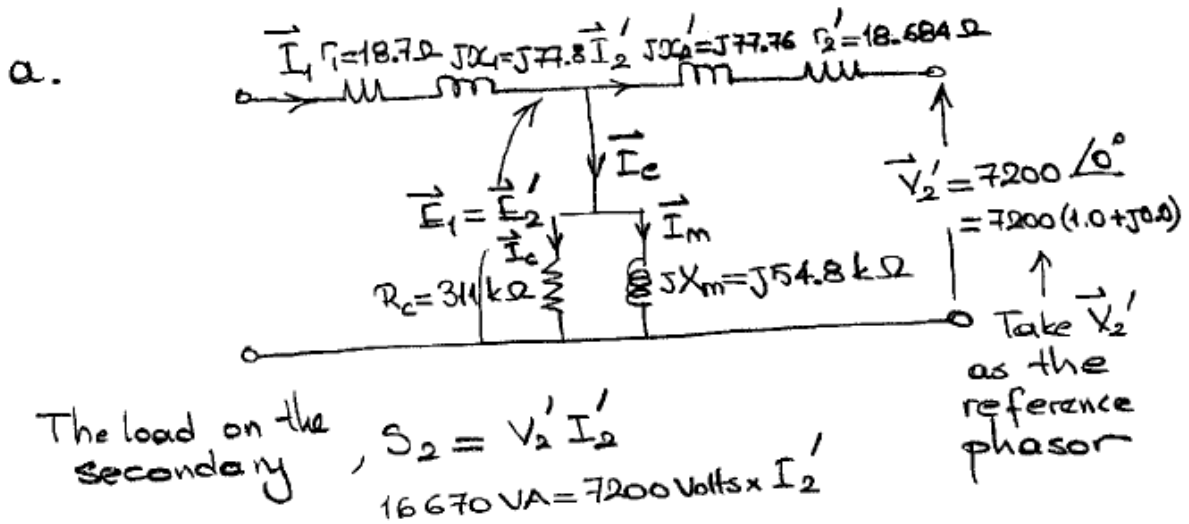 a.
I⃗₁ r₁=18.7Ω jx₁=j77.8 I⃗₂′ jx₂′=j77.76 r₂′=18.684Ω
I⃗e
E⃗₁ = E⃗₂′
I⃗c
I⃗m
Rc=311kΩ
jXm=j54.8kΩ
V⃗₂′=7200∠0°
=7200(1.0+j0.0)
Take V⃗₂′
as the
reference
phasor
The load on the
secondary , S₂ = V₂′ I₂′
16670VA=7200Volts× I₂′